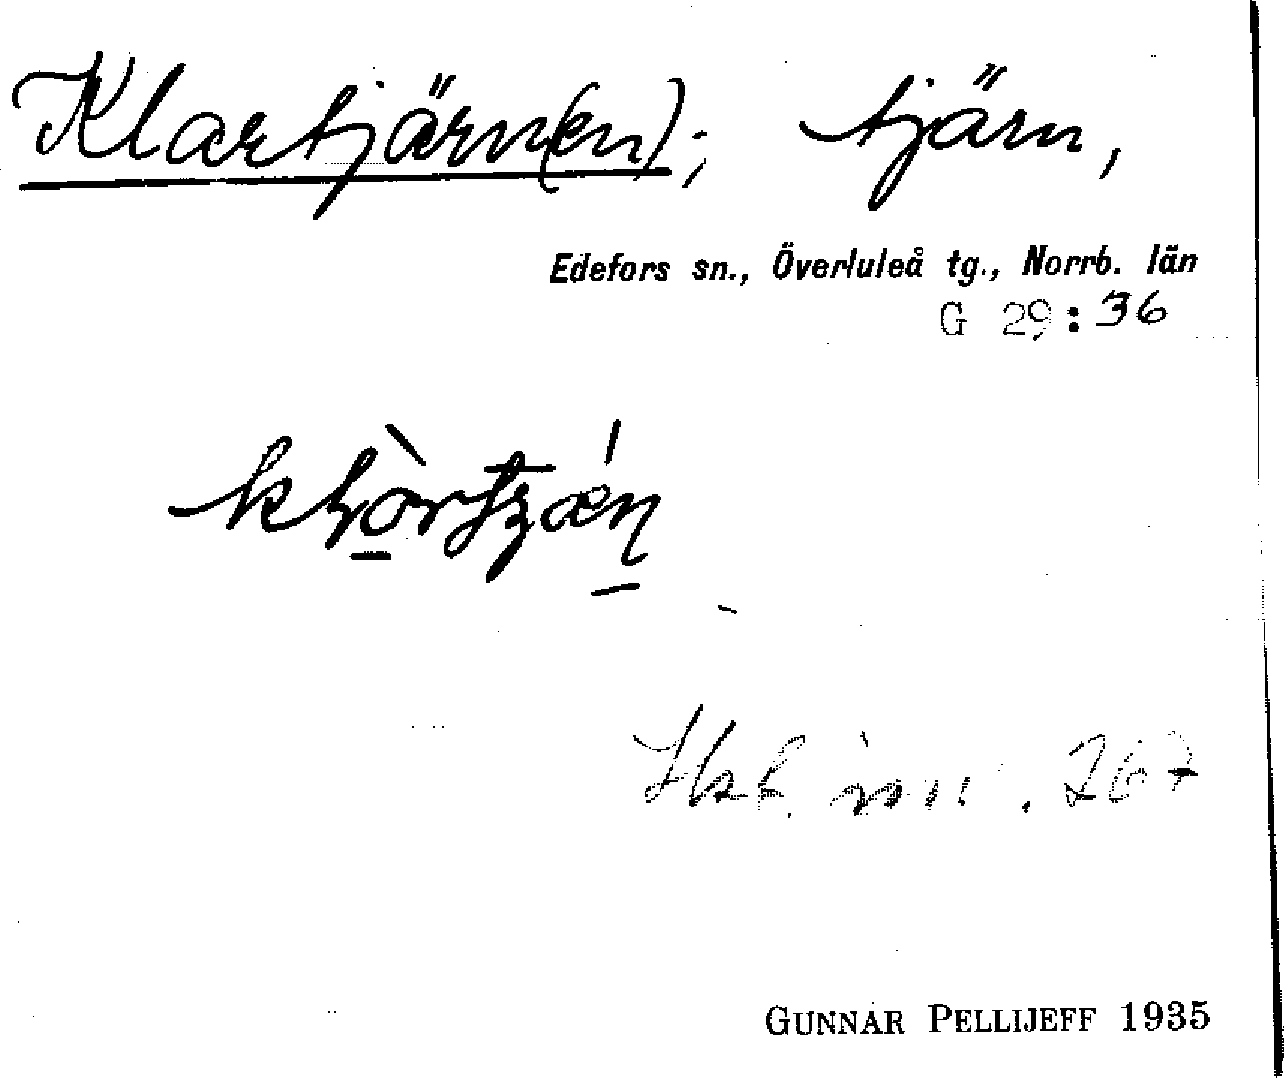 Klartjärn(en); tjärn,
Edefors sn., Överluleå tg., Norrb. län
G 29:36
267
GUNNAR PELLIJEFF 1935